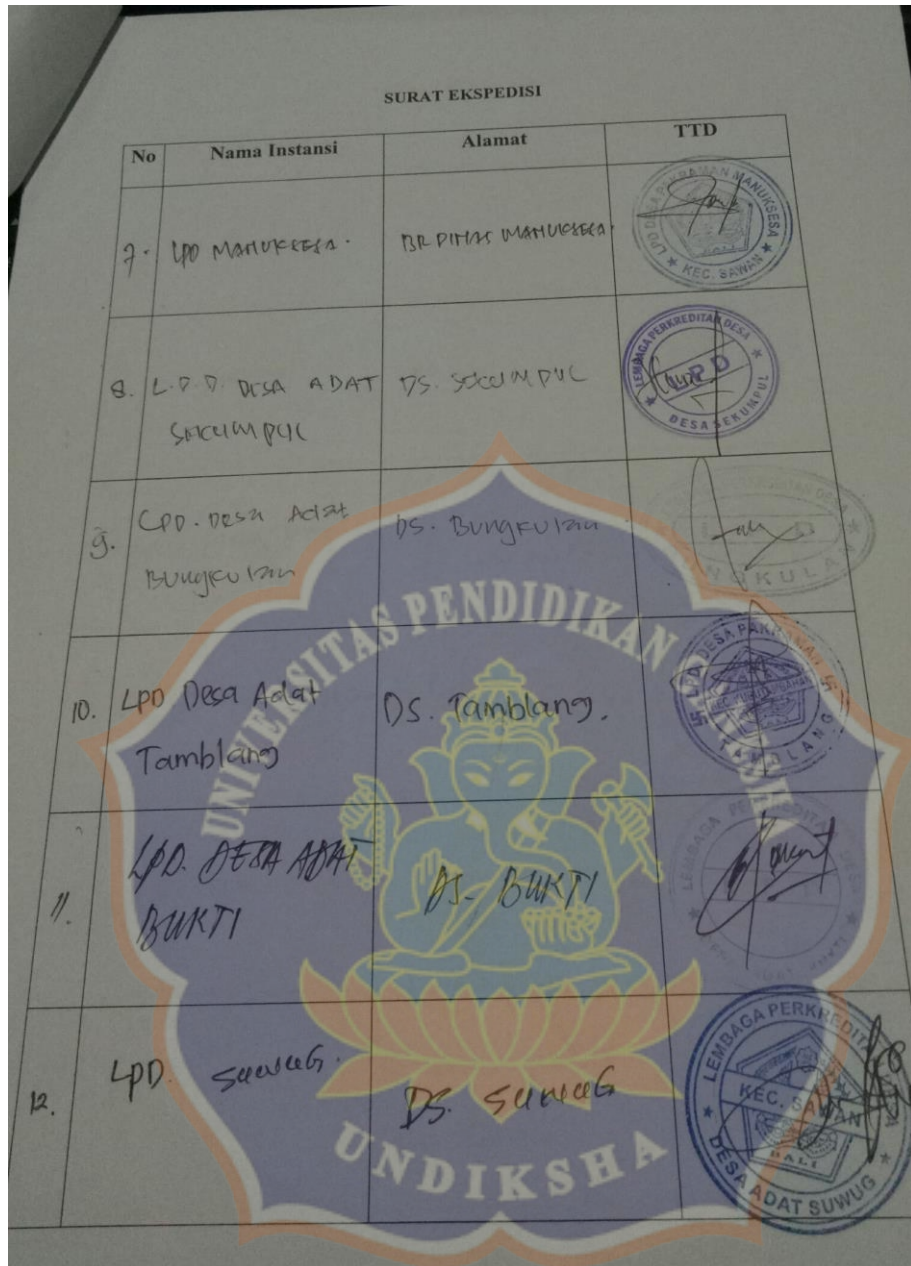 SURAT EKSPEDISI
No Nama Instansi Alamat TTD
7. LPD MANUKSESA. BR DINAS MANUKSESA.
LPD DESA PAKRAMAN MANUKSESA
KEC. SAWAN
8. L.P.D. DESA ADAT DS. SEKUMPUL
SEKUMPUL
LEMBAGA PERKREDITAN DESA
LPD
DESA SEKUMPUL
9. LPD. Desa Adat DS. Bungkulan
Bungkulan
10. LPD Desa Adat DS. Tamblang.
Tamblang
LPD DESA PAKRAMAN
TAMBLANG
11. LPD. DESA ADAT DS. BUKTI
BUKTI
LEMBAGA PERKREDITAN
12. LPD. SUWUG. DS. SUWUG
LEMBAGA PERKREDITAN
KEC. SAWAN
BALI
DESA ADAT SUWUG
UNIVERSITAS PENDIDIKAN GANESHA
UNDIKSHA